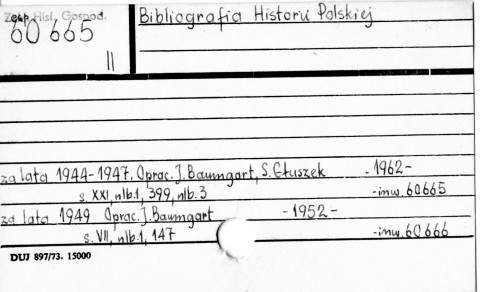 Zesp. Hist. Gospod.
60 665
II
Bibliografia Historii Polskiej
za lata 1944-1947. Oprac. J. Baumgart, S. Głuszek - 1962 -
s. XXI, nlb. 1, 399, nlb. 3 - inw. 60665
za lata 1949 Oprac. J. Baumgart - 1952 -
s. VII, nlb. 1, 147 - inw. 60666
DUJ 897/73. 15000